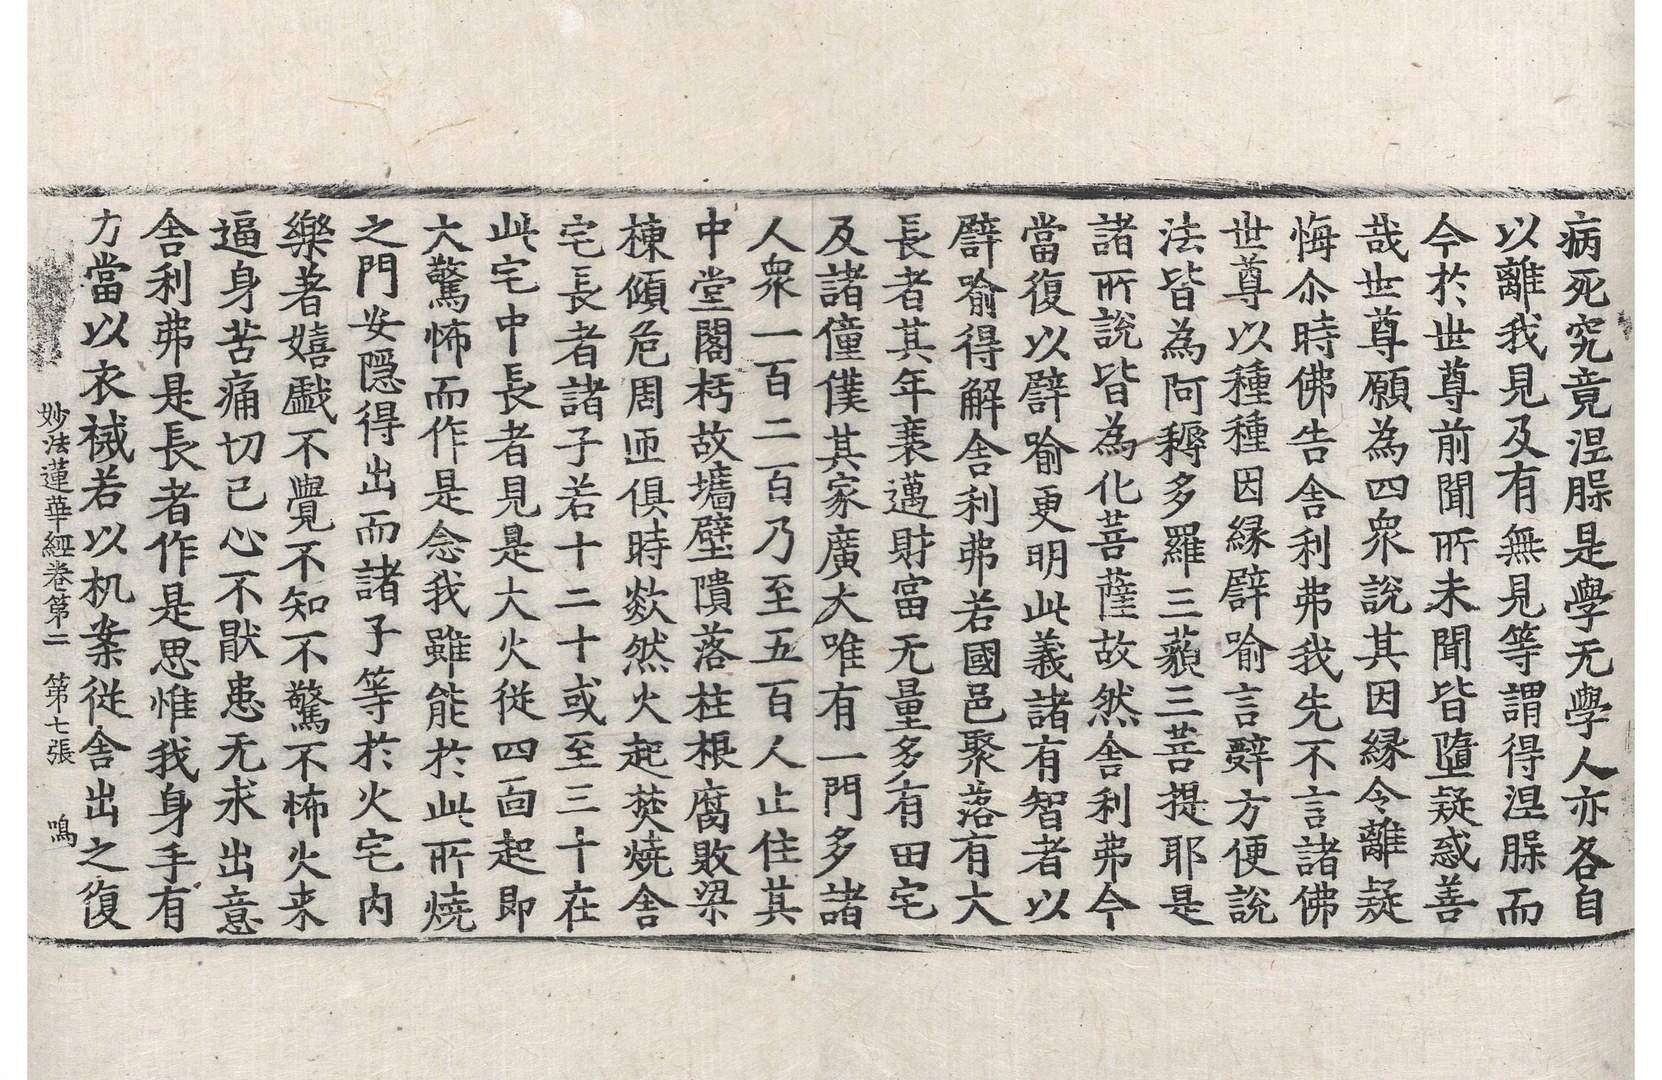 病死究竟涅槃是學无學人亦各自
以離我見及有無見等謂得涅槃而
今於世尊前聞所未聞皆墮疑惑善
哉世尊願為四衆說其因縁令離疑
悔尒時佛告舎利弗我先不言諸佛
世尊以種種因縁譬喻言辭方便說
法皆為阿耨多羅三藐三菩提耶是
諸所說皆為化菩薩故然舎利弗今
當復以譬喻更明此義諸有智者以
譬喻得解舎利弗若國邑聚落有大
長者其年衰邁財富无量多有田宅
及諸僮僕其家廣大唯有一門多諸
人衆一百二百乃至五百人止住其
中堂閣朽故墻壁隤落柱根腐敗梁
棟傾危周匝俱時欻然火起焚燒舎
宅長者諸子若十二十或至三十在
此宅中長者見是大火從四面起即
大驚怖而作是念我雖能於此所燒
之門安隱得出而諸子等於火宅内
樂著嬉戲不覺不知不驚不怖火来
逼身苦痛切己心不猒患无求出意
舎利弗是長者作是思惟我身手有
力當以衣祴若以机案從舎出之復
妙法蓮華經卷第二 第七張 鳴